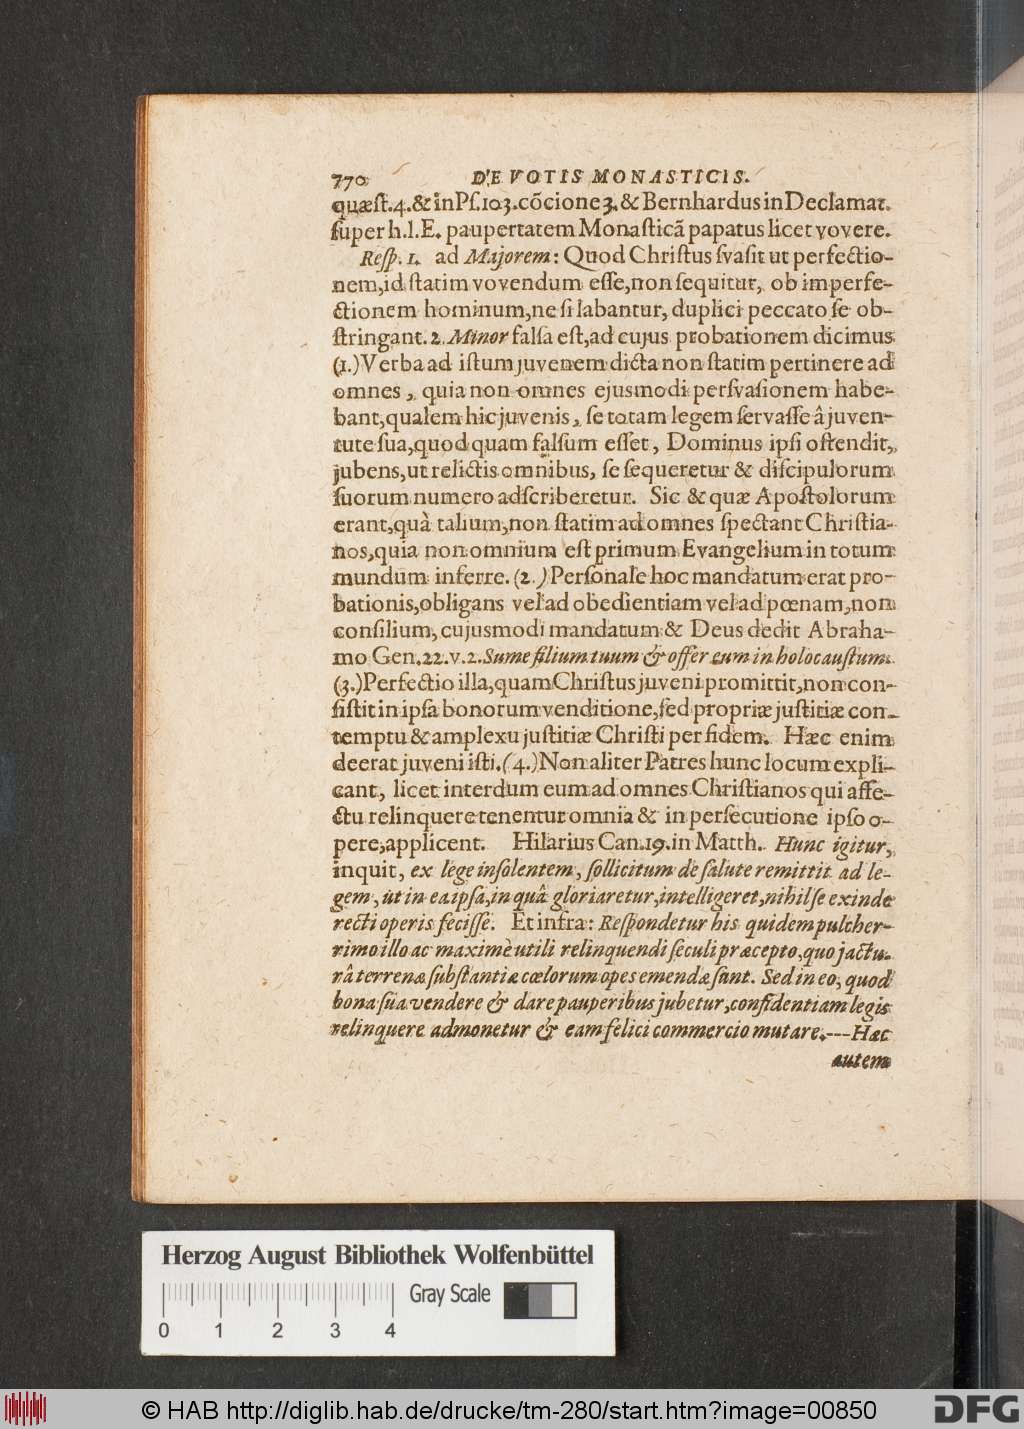 770 DE VOTIS MONASTICIS.
quæſt. 4. & in Pſ. 103. cõcione 3. & Bernhardus in Declamat.
ſuper h. l. E. paupertatem Monaſticã papatus licet vovere.
Reſp. 1. ad Majorem: Quod Chriſtus ſvaſit ut perfectio-
nem, id ſtatim vovendum eſſe, non ſequitur, ob imperfe-
ctionem hominum, ne ſi labantur, duplici peccato ſe ob-
ſtringant. 2. Minor falſa eſt, ad cujus probationem dicimus
(1.) Verba ad iſtum juvenem dicta non ſtatim pertinere ad
omnes, quia non omnes ejusmodi perſvaſionem habe-
bant, qualem hic juvenis, ſe totam legem ſervaſſe â juven-
tute ſua, quod quam falſum eſſet, Dominus ipſi oſtendit,
jubens, ut relictis omnibus, ſe ſequeretur & diſcipulorum
ſuorum numero adſcriberetur. Sic & quæ Apoſtolorum
erant, quà talium, non ſtatim ad omnes ſpectant Chriſtia-
nos, quia non omnium eſt primum Evangelium in totum
mundum inferre. (2.) Perſonale hoc mandatum erat pro-
bationis, obligans vel ad obedientiam vel ad pœnam, non
conſilium, cujusmodi mandatum & Deus dedit Abraha-
mo Gen. 22. v. 2. Sume filium tuum & offer eum in holocauſtum.
(3.) Perfectio illa, quam Chriſtus juveni promittit, non con-
ſiſtit in ipſa bonorum venditione, ſed propriæ juſtitiæ con-
temptu & amplexu juſtitiæ Chriſti per fidem. Hæc enim
deerat juveni iſti. (4.) Non aliter Patres hunc locum expli-
cant, licet interdum eum ad omnes Chriſtianos qui affe-
ctu relinquere tenentur omnia & in perſecutione ipſo o-
pere, applicent. Hilarius Can. 19. in Matth. Hunc igitur,
inquit, ex lege inſolentem, ſollicitum de ſalute remittit ad le-
gem, ut in ea ipſa, in quâ gloriaretur, intelligeret, nihil ſe exinde
recti operis feciſſe. Et infra: Reſpondetur his quidem pulcher-
rimo illo ac maximè utili relinquendi ſeculi præcepto, quo jactu-
râ terrenæ ſubſtantiæ cœlorum opes emendæ ſunt. Sed in eo, quod
bona ſua vendere & dare pauperibus jubetur, confidentiam legis
relinquere admonetur & eam felici commercio mutare. --- Hæc
autem
Herzog August Bibliothek Wolfenbüttel
0 1 2 3 4 Gray Scale
© HAB http://diglib.hab.de/drucke/tm-280/start.htm?image=00850 DFG